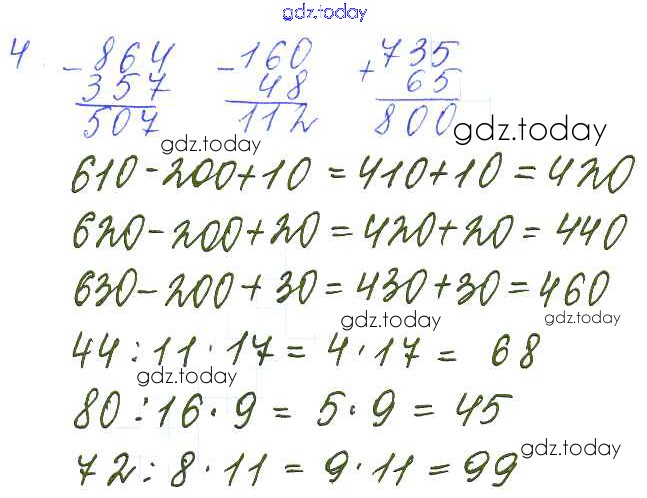 gdz.today
4. -864 -160 +735
357 48 65
507 112 800
gdz.today
gdz.today
610-200+10=410+10=420
620-200+20=420+20=440
630-200+30=430+30=460
gdz.today
gdz.today
44:11·17=4·17= 68
gdz.today
80:16·9=5·9=45
72:8·11=9·11=99
gdz.today